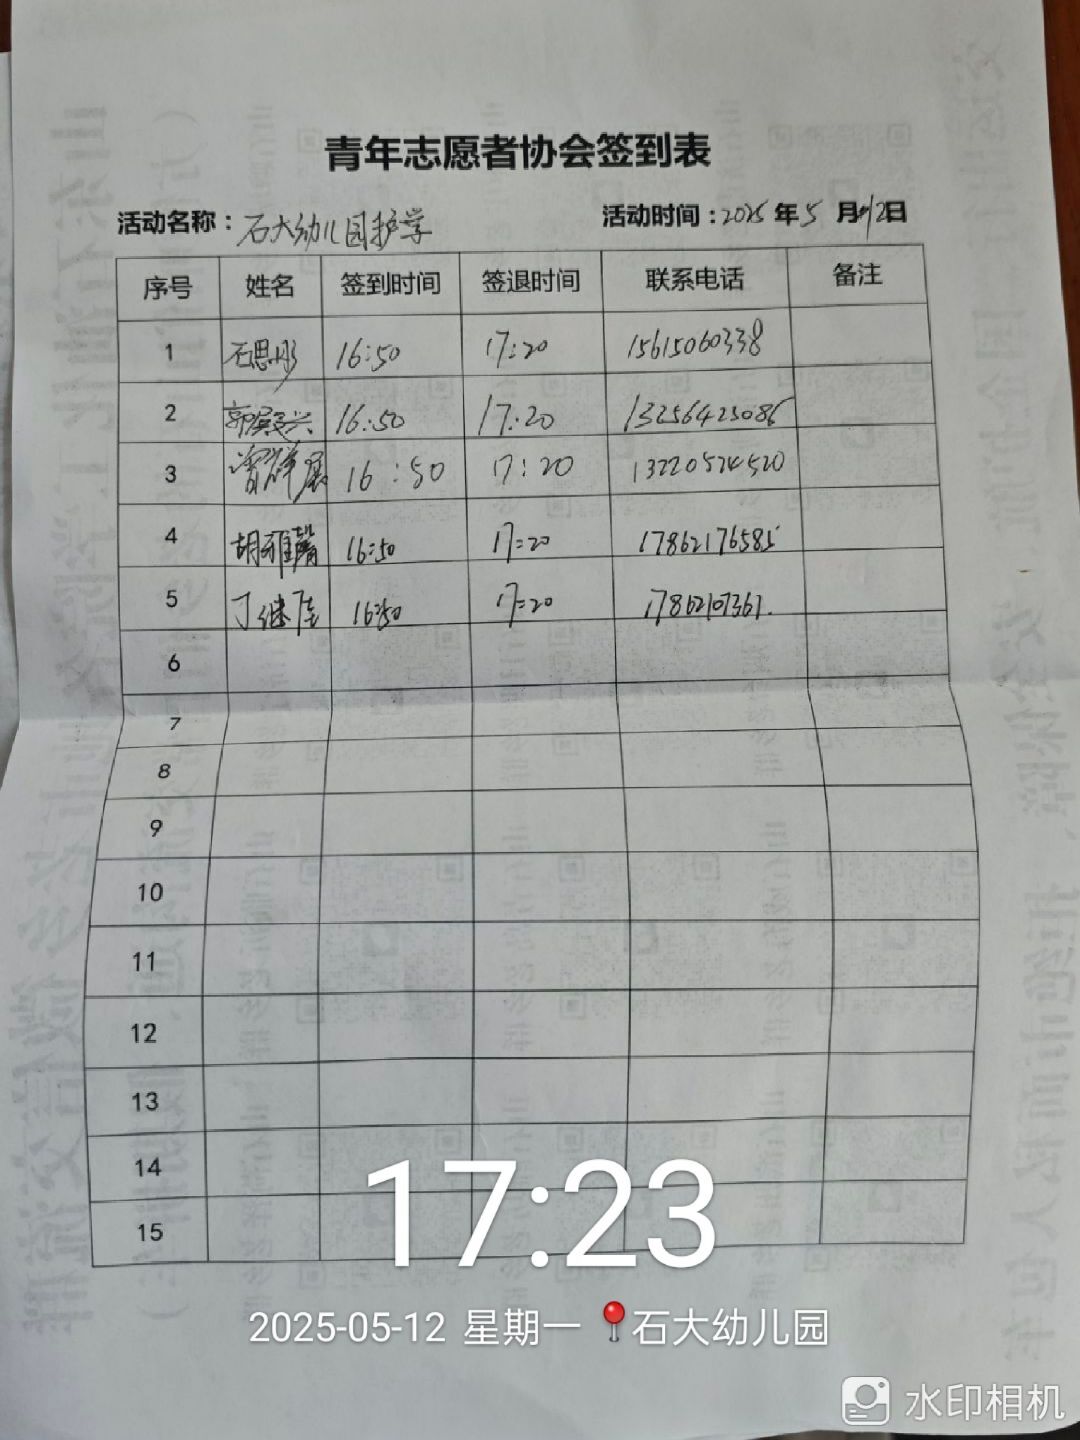 青年志愿者协会签到表
活动名称：石大幼儿园护学 活动时间：2025年5月12日
序号 姓名 签到时间 签退时间 联系电话 备注
1 石思彤 16:50 17:20 15615060338
2 16:50 17:20 13256425086
3 16:50 17:20 13220524520
4 胡雅馨 16:50 17:20 17862176585
5 丁继 16:50 17:20 17862107361.
6
7
8
9
10
11
12
13
14
15
17:23
2025-05-12 星期一 石大幼儿园
水印相机